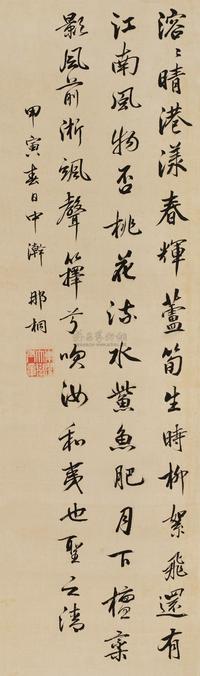 溶〻晴港漾春輝蘆筍生時柳絮飛還有
江南風物否桃花流水鮆魚肥月下檀欒
影風前淅颯聲籜兮吹汝和夷也聖之清
甲寅春日中澣 那桐